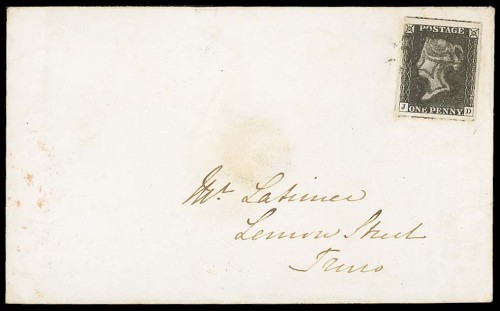 POSTAGE
J D
ONE PENNY
Mr Latimer
Lemon Street
Truro